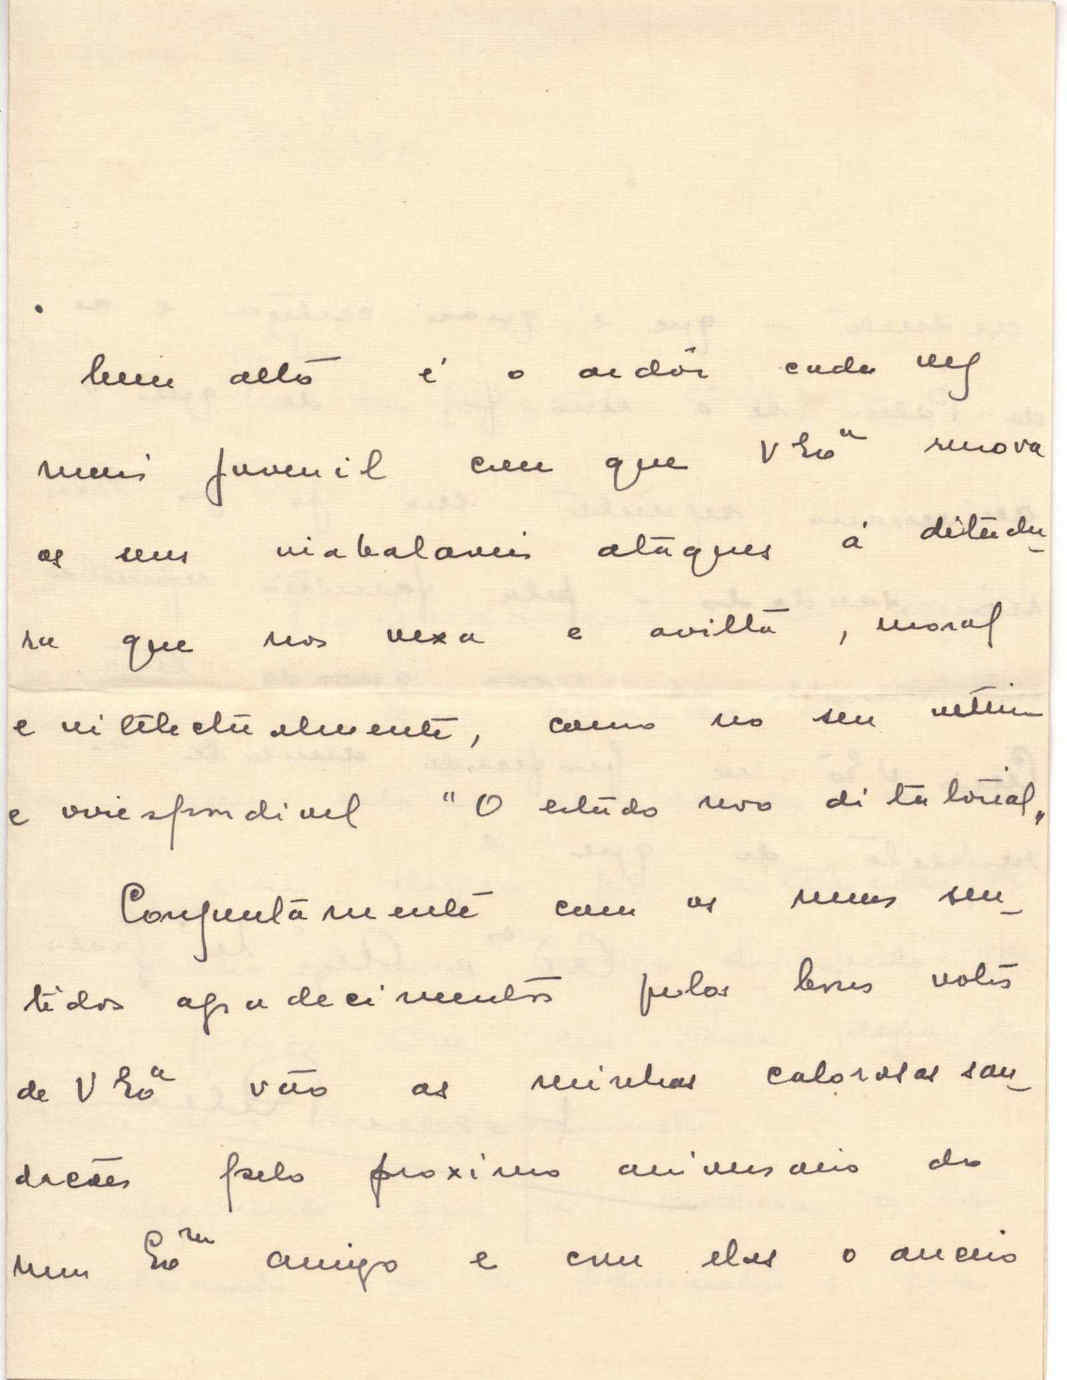 bem alto é o ardôr cada vez
mais juvenil com que V Exª renova
os seus inabalaveis ataques á ditadu-
ra que nos vexa e avilta, moral
e intelectualmente, como no seu ultimo
e irrespondivel "O estado novo ditatorial"
Conjuntamente com os meus sen-
tidos agradecimentos pelos bons votos
de V Exª vão as minhas calorosas sau-
dações pelo proximo aniversario do
meu Exmo amigo e com elas o anceio